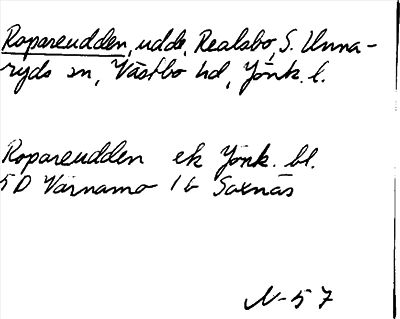 Ropareudden, udde, Realsbo, S. Unna-
ryds sn, Västbo hd, Jönk. l.
Ropareudden ek Jönk. bl.
5 D Värnamo 1 b Saxnäs
N-57